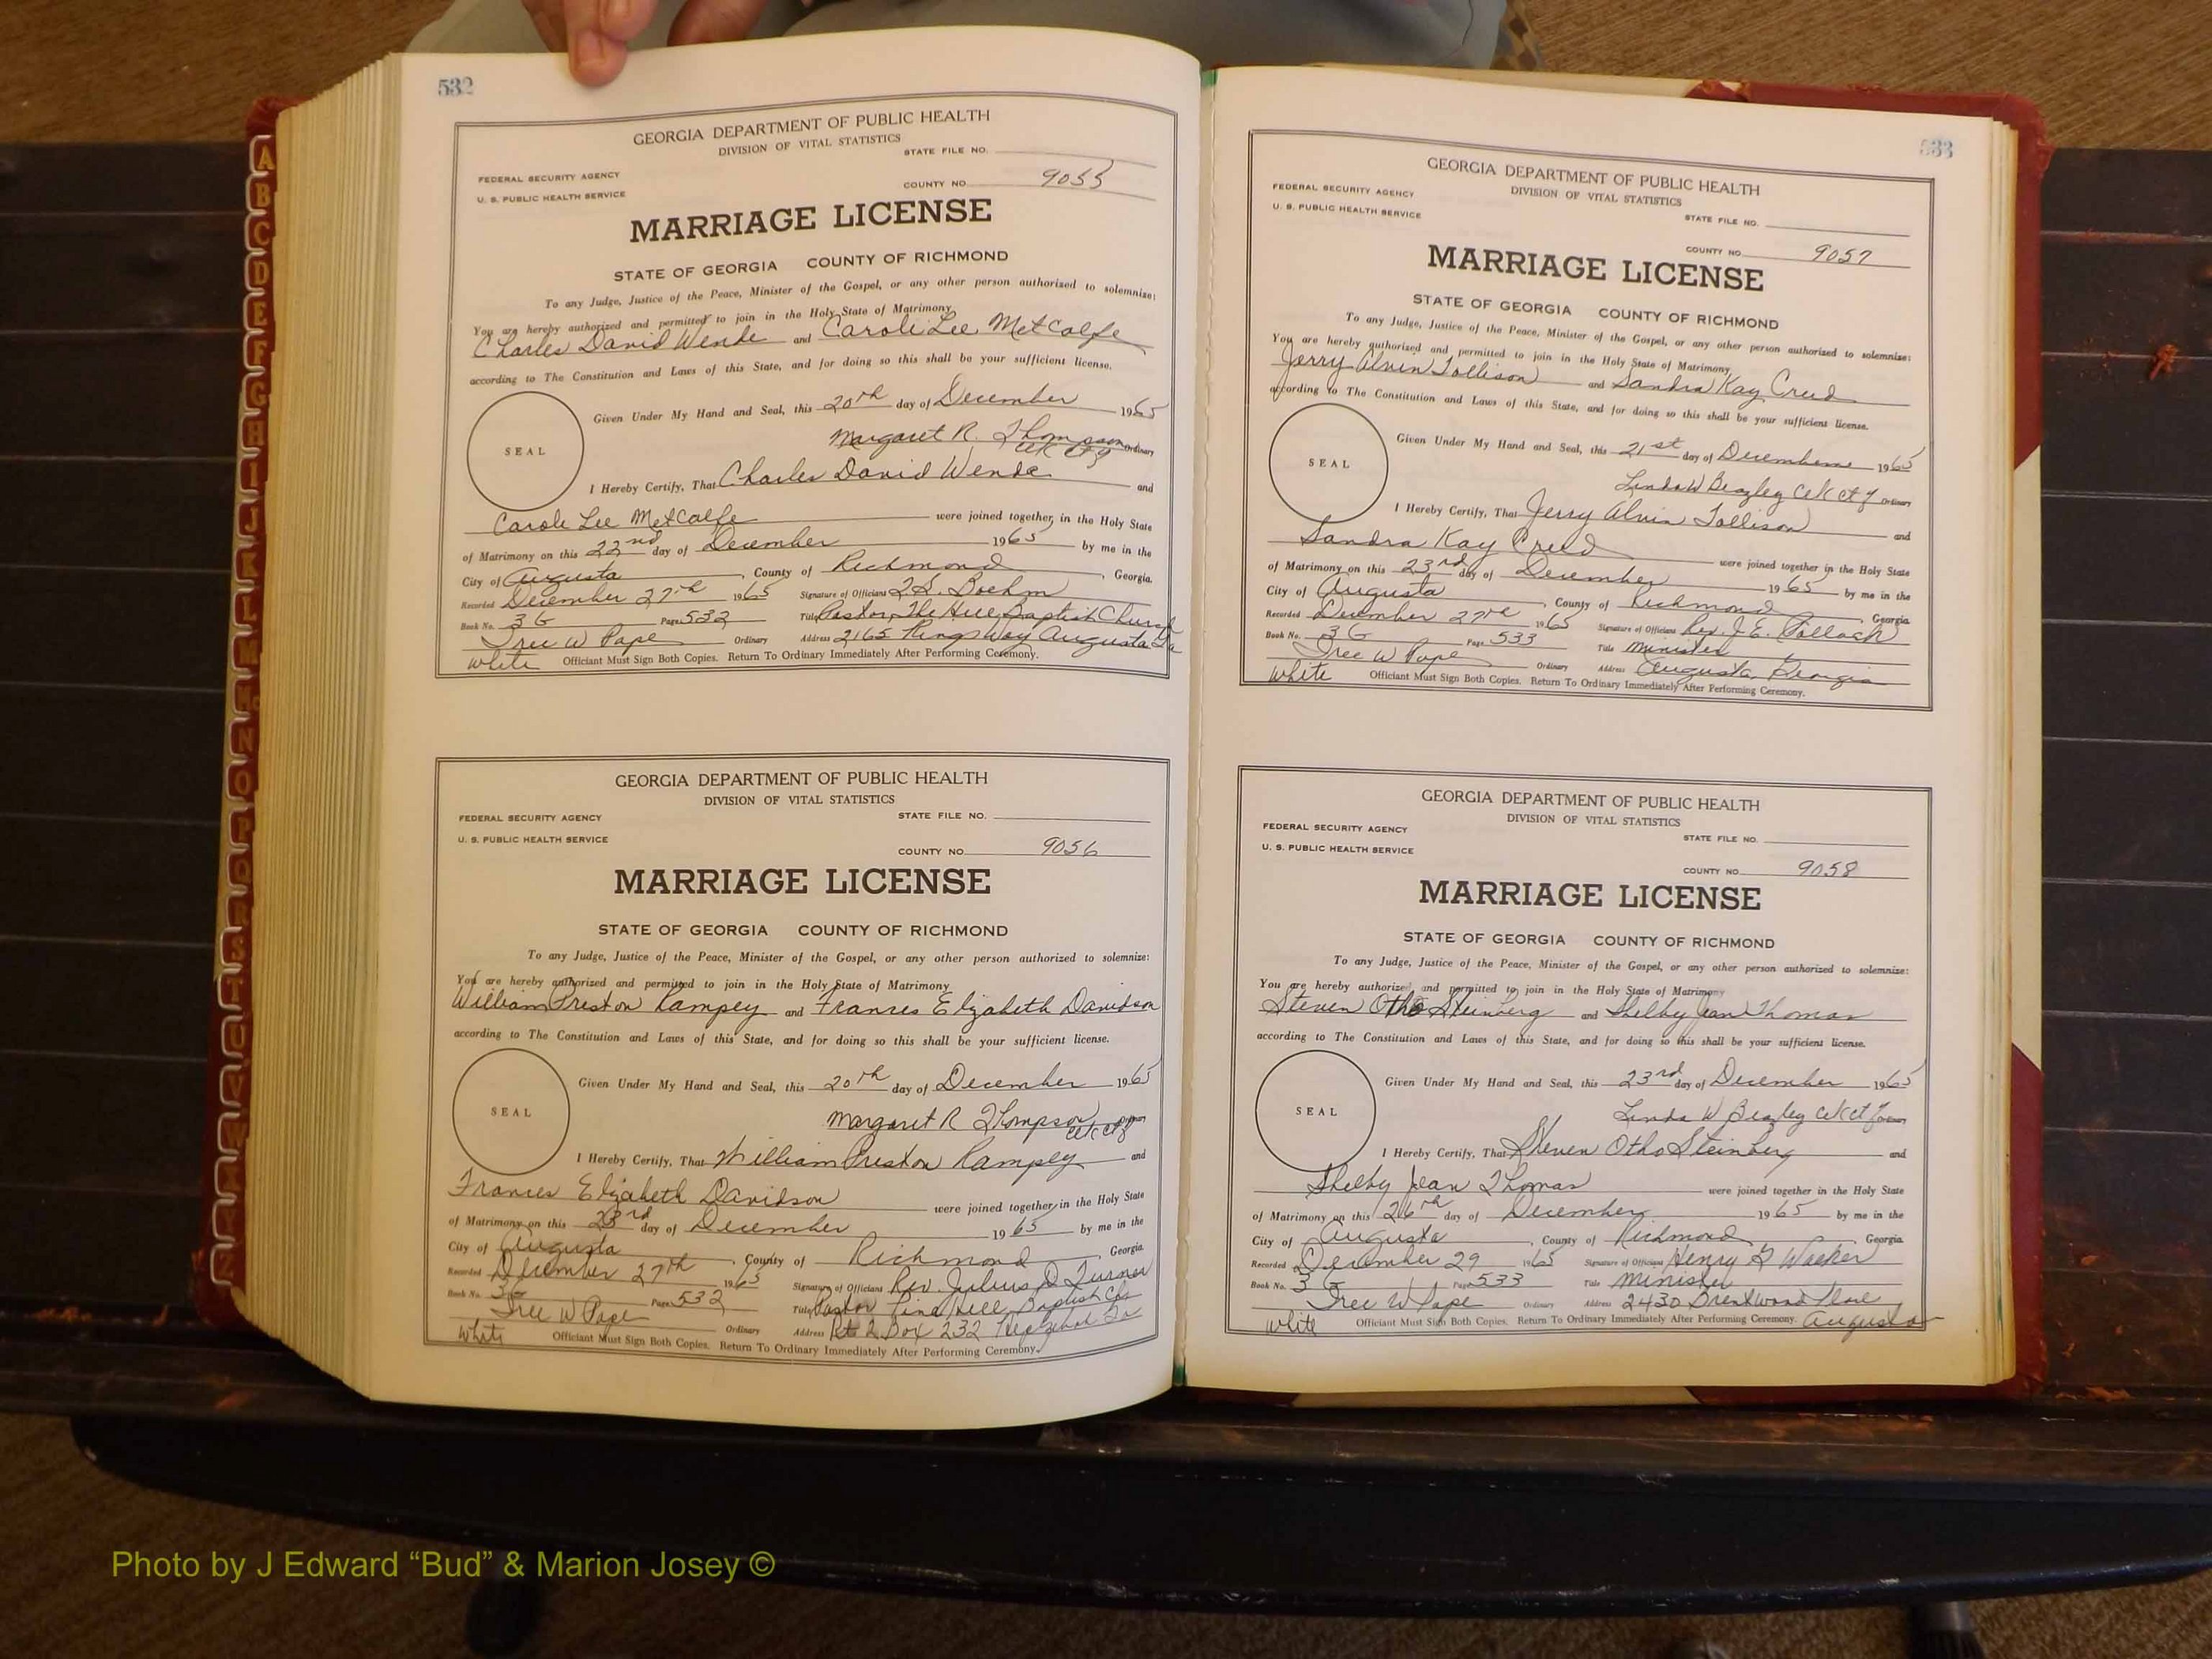 532
GEORGIA DEPARTMENT OF PUBLIC HEALTH
DIVISION OF VITAL STATISTICS
STATE FILE NO.
FEDERAL SECURITY AGENCY
U. S. PUBLIC HEALTH SERVICE
COUNTY NO. 9055
MARRIAGE LICENSE
STATE OF GEORGIA COUNTY OF RICHMOND
To any Judge, Justice of the Peace, Minister of the Gospel, or any other person authorized to solemnize:
You are hereby authorized and permitted to join in the Holy State of Matrimony
Charles David Wende and Carole Lee Metcalfe
according to The Constitution and Laws of this State, and for doing so this shall be your sufficient license.
Given Under My Hand and Seal, this 20th day of December 1965
SEAL
Margaret R. Thompson Ordinary
I Hereby Certify, That Charles David Wende and
Carole Lee Metcalfe were joined together, in the Holy State
of Matrimony on this 22nd day of December 1965 by me in the
City of Augusta, County of Richmond, Georgia.
Recorded December 27th 1965 Signature of Officiant Boehm
Book No. 3G Page 532 Title Pastor, The Hill Baptist Church
Tree W Pape Ordinary Address 2165 Kings Way Augusta Ga
White Officiant Must Sign Both Copies. Return To Ordinary Immediately After Performing Ceremony.
GEORGIA DEPARTMENT OF PUBLIC HEALTH
DIVISION OF VITAL STATISTICS
STATE FILE NO.
FEDERAL SECURITY AGENCY
U. S. PUBLIC HEALTH SERVICE
COUNTY NO. 9056
MARRIAGE LICENSE
STATE OF GEORGIA COUNTY OF RICHMOND
To any Judge, Justice of the Peace, Minister of the Gospel, or any other person authorized to solemnize:
You are hereby authorized and permitted to join in the Holy State of Matrimony
William Preston Rampey and Frances Elizabeth Davidson
according to The Constitution and Laws of this State, and for doing so this shall be your sufficient license.
Given Under My Hand and Seal, this 20th day of December 1965
SEAL
Margaret R Thompson
I Hereby Certify, That William Preston Rampey and
Frances Elizabeth Davidson were joined together in the Holy State
of Matrimony on this 23rd day of December 1965 by me in the
City of Augusta, County of Richmond, Georgia.
Recorded December 27th 1965 Signature of Officiant Rev. Julius D Turner
Book No. 3G Page 532 Title Pastor Pine Hill Baptist
Tree W Pape Ordinary Address Rt 2 Box 232 Hephzibah Ga
White Officiant Must Sign Both Copies. Return To Ordinary Immediately After Performing Ceremony.
533
GEORGIA DEPARTMENT OF PUBLIC HEALTH
DIVISION OF VITAL STATISTICS
FEDERAL SECURITY AGENCY
U. S. PUBLIC HEALTH SERVICE
STATE FILE NO.
COUNTY NO. 9057
MARRIAGE LICENSE
STATE OF GEORGIA COUNTY OF RICHMOND
To any Judge, Justice of the Peace, Minister of the Gospel, or any other person authorized to solemnize:
You are hereby authorized and permitted to join in the Holy State of Matrimony
Jerry Alvin Tollison and Sandra Kay Creed
according to The Constitution and Laws of this State, and for doing so this shall be your sufficient license.
Given Under My Hand and Seal, this 21st day of 1965
SEAL
Linda W Beazley Clk Ct of Ordinary
I Hereby Certify, That Jerry Alvin Tollison and
Sandra Kay Creed were joined together in the Holy State
of Matrimony on this 23rd day of December 1965 by me in the
City of Augusta, County of Richmond, Georgia
Recorded December 27th 1965 Signature of Officiant Rev. J. E. Pollock
Book No. 3G Page 533 Title Minister
Tree W Pape Ordinary Address Augusta, Georgia
White Officiant Must Sign Both Copies. Return To Ordinary Immediately After Performing Ceremony.
GEORGIA DEPARTMENT OF PUBLIC HEALTH
DIVISION OF VITAL STATISTICS
FEDERAL SECURITY AGENCY
U. S. PUBLIC HEALTH SERVICE
STATE FILE NO.
COUNTY NO. 9058
MARRIAGE LICENSE
STATE OF GEORGIA COUNTY OF RICHMOND
To any Judge, Justice of the Peace, Minister of the Gospel, or any other person authorized to solemnize:
You are hereby authorized and permitted to join in the Holy State of Matrimony
Steven Otho Steinberg and Shelby Jean Thomas
according to The Constitution and Laws of this State, and for doing so this shall be your sufficient license.
Given Under My Hand and Seal, this 23rd day of December 1965
SEAL
Linda W Beazley Clk Ct of
I Hereby Certify, That Steven Otho Steinberg and
Shelby Jean Thomas were joined together in the Holy State
of Matrimony on this 26th day of December 1965 by me in the
City of Augusta, County of Richmond, Georgia
Recorded December 29 1965 Signature of Officiant Henry G Walker
Book No. 3G Page 533 Title Minister
Tree W Pape Ordinary Address 2430 Brentwood Place
White Officiant Must Sign Both Copies. Return To Ordinary Immediately After Performing Ceremony. Augusta
A
B
C
D
E
F
G
H
I
J
K
L
M
Mc
N
O
P
Q
R
S
T
U
V
W
Z
Photo by J Edward “Bud” & Marion Josey ©